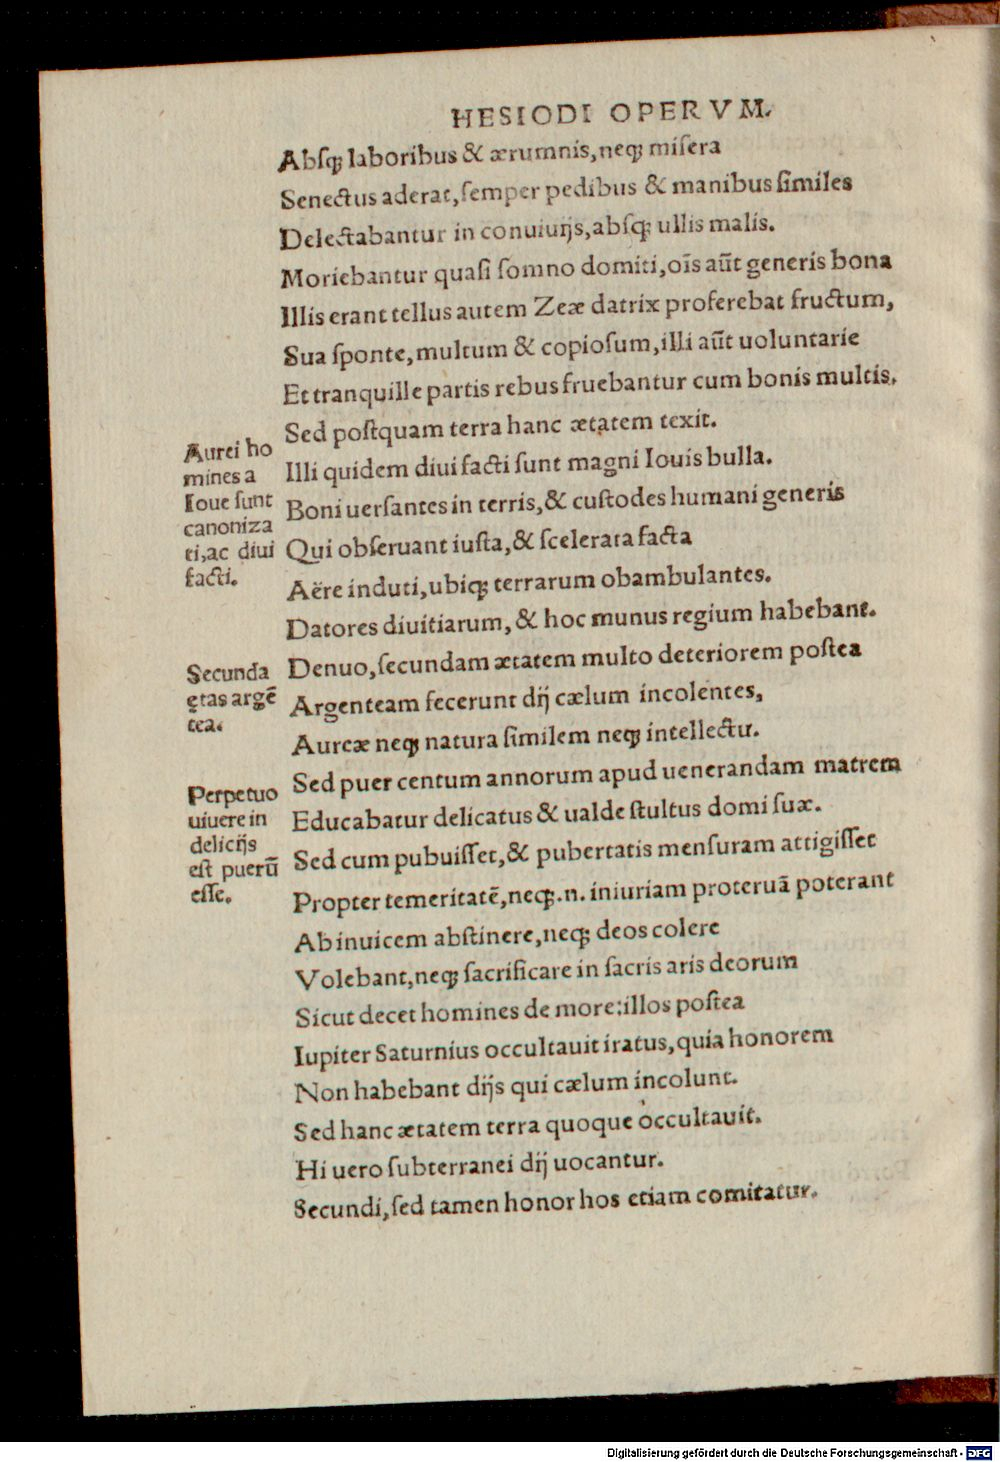 HESIODI OPERVM.
Abſqꝫ laboribus & ærumnis,neqꝫ miſera
Senectus aderat,ſemper pedibus & manibus ſimiles
Delectabantur in conuiuijs,abſqꝫ ullis malis.
Moriebantur quaſi ſomno domiti,oīs aūt generis bona
Illis erant tellus autem Zeæ datrix proferebat fructum,
Sua ſponte,multum & copioſum,illi aūt uoluntarie
Et tranquille partis rebus fruebantur cum bonis multis.
Sed poſtquam terra hanc ætatem texit.
Aurei ho
mines a
Ioue ſunt
canoniza
ti,ac diui
facti.
Illi quidem diui facti ſunt magni Iouis bulla.
Boni uerſantes in terris,& cuſtodes humani generis
Qui obſeruant iuſta,& ſcelerata facta
Aëre induti,ubiqꝫ terrarum obambulantes.
Datores diuitiarum,& hoc munus regium habebant.
Secunda
ętas argē
tea.
Denuo,ſecundam ætatem multo deteriorem poſtea
Argenteam fecerunt dij cælum incolentes,
Aureæ neqꝫ natura ſimilem neqꝫ intellectu.
Perpetuo
uiuere in
delicijs
eſt puerū
eſſe.
Sed puer centum annorum apud uenerandam matrem
Educabatur delicatus & ualde ſtultus domi ſuæ.
Sed cum pubuiſſet,& pubertatis menſuram attigiſſet
Propter temeritatē,neqꝫ.n. iniuriam proteruā poterant
Ab inuicem abſtinere,neqꝫ deos colere
Volebant,neqꝫ ſacrificare in ſacris aris deorum
Sicut decet homines de more:illos poſtea
Iupiter Saturnius occultauit iratus,quia honorem
Non habebant dijs qui cælum incolunt.
Sed hanc ætatem terra quoque occultauit.
Hi uero ſubterranei dij uocantur.
Secundi,ſed tamen honor hos etiam comitatur.
Digitalisierung gefördert durch die Deutsche Forschungsgemeinschaft - DFG